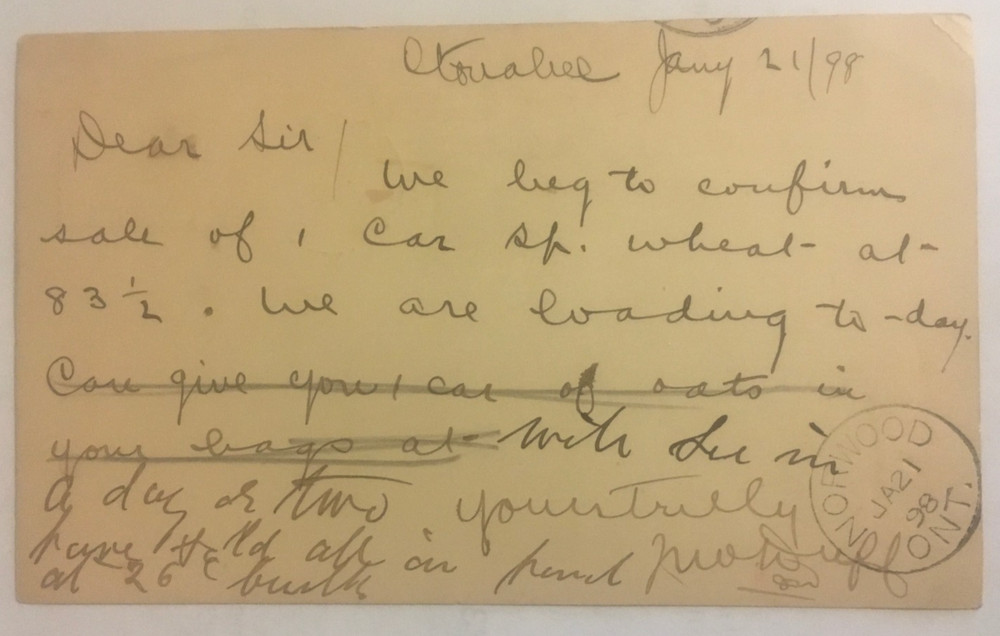 Otonabee Jany 21/98
Dear Sir/
We beg to confirm
sale of 1 Car Sp. wheat at
83 1/2. We are loading to-day.
Can give you 1 car of oats in
your bags at will see in
a day or two yours truly
have sold all in hand
at 26c bush
NORWOOD
JA 21
98
ONT.